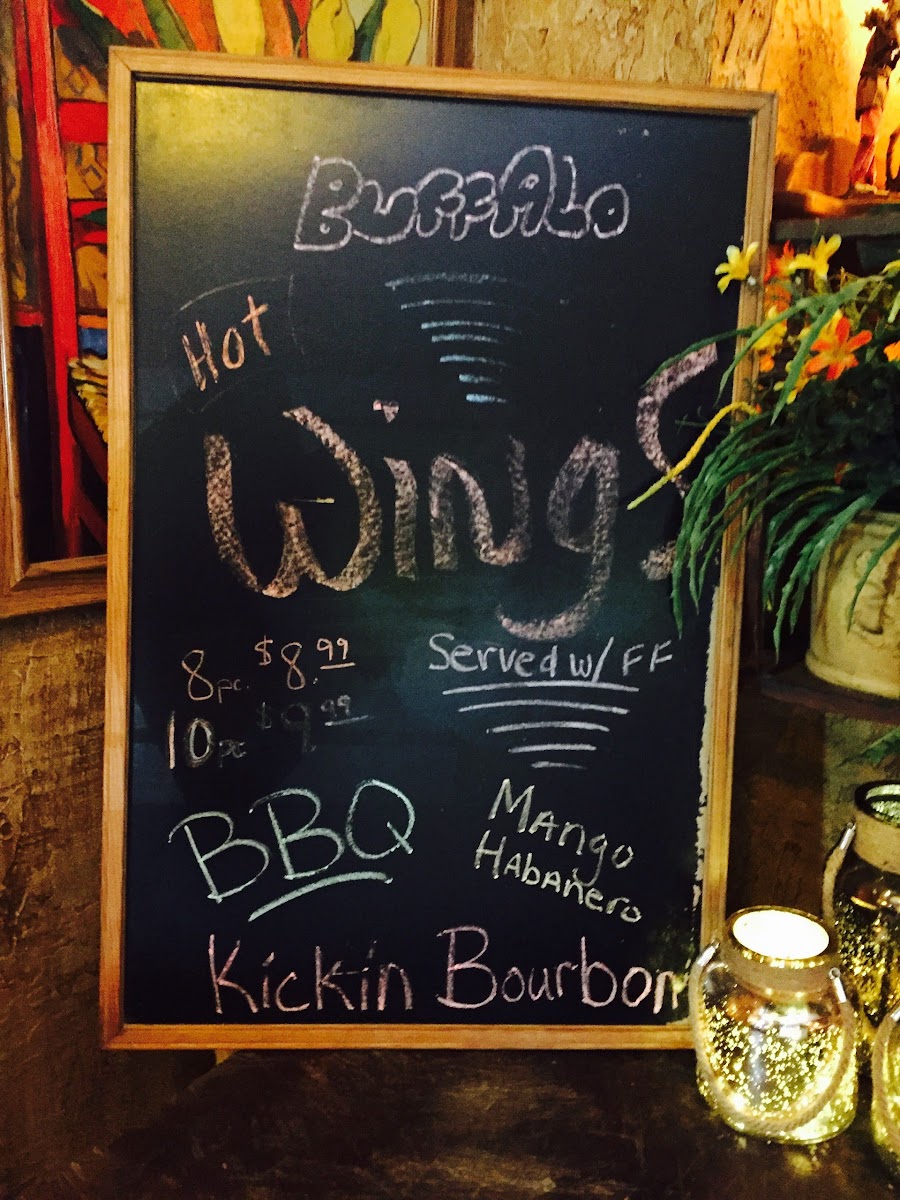 BUFFALO
Hot
WingS
8pc. $8.99
10pc $9.99
Served w/ FF
BBQ
Mango
Habanero
Kickin Bourbon